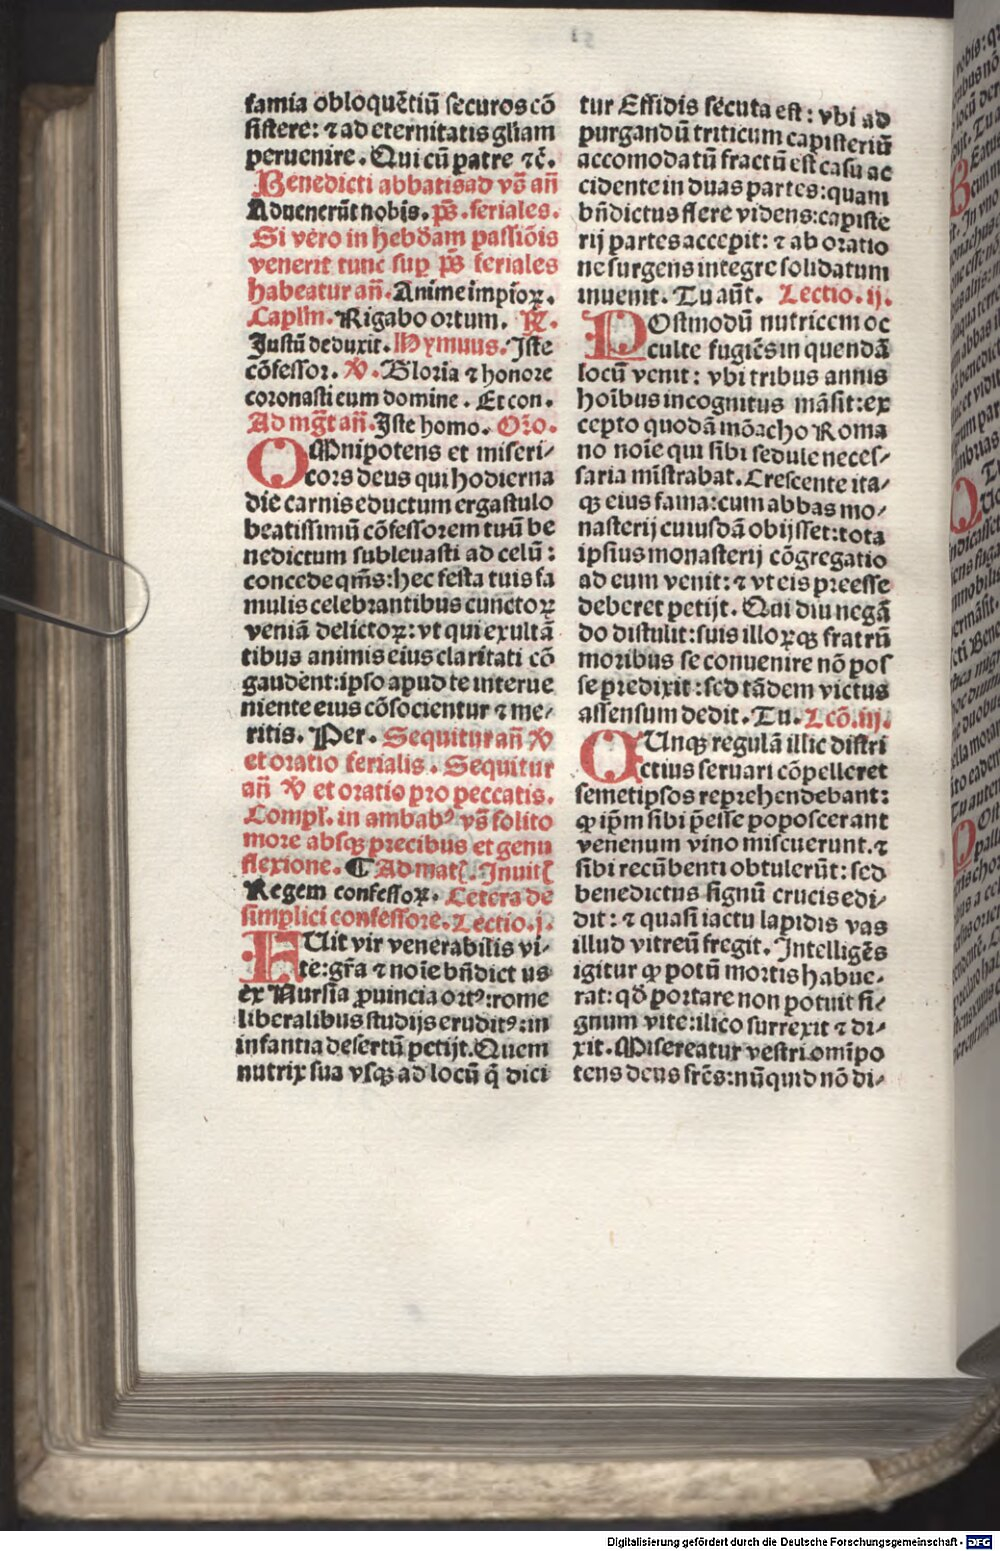 famia obloquētiū securos cō
sistere: ⁊ ad eternitatis gl̄iam
peruenire. Qui cū patre ⁊c̄.
Benedicti abbatis ad vs̄ an̄
Aduenerūt nobis. ps̄. feriales.
Si vero in hebdam passiōis
venerit tunc sup ps̄ feriales
habeatur an̄. Anime impioꝝ.
Capl̄m. Rigabo ortum. ꝶ.
Justū deduxit. Hymnus. Iste
cōfessor. ℣. Gloria ⁊ honore
coronasti eum domine. Et con.
Ad mḡt an̄. Iste homo. Oīo.
OMnipotens et miseri-
cors deus qui hodierna
die carnis eductum ergastulo
beatissimū cōfessorem tuū be
nedictum subleuasti ad celū:
concede qm̄s: hec festa tuis fa
mulis celebrantibus cunctoꝝ
veniā delictoꝝ: vt qui exultā
tibus animis eius claritati cō
gaudent: ipso apud te interue
niente eius cōsocientur ⁊ me-
ritis. Per. Sequitur an̄ ℣
et oratio ferialis. Sequitur
an̄ ℣ et oratio pro peccatis.
Compl̄. in ambabꝰ vs̄ solito
more absqꝫ precibus et genu
flexione. ¶ Ad mat̄. Inuit̄
Regem confessoꝝ. Cetera de
simplici confessore. Lectio. j.
FUit vir venerabilis vi-
te: gr̄a ⁊ noīe bn̄dictus
ex Nursia ꝓuincia ortꝰ: rome
liberalibus studijs eruditꝰ: in
infantia desertū petijt. Quem
nutrix sua vsqꝫ ad locū q̄ dici
tur Effidis secuta est: vbi ad
purgandū triticum capisteriū
accomodatū fractū est casu ac
cidente in duas partes: quam
bn̄dictus flere videns: capiste
rij partes accepit: ⁊ ab oratio
ne surgens integre solidatum
inuenit. Tu aūt. Lectio. ij.
POstmodū nutricem oc
culte fugiēs in quendā
locū venit: vbi tribus annis
hoībus incognitus māsit: ex
cepto quodā mōacho Roma
no noīe qui sibi sedule neces-
saria mīstrabat. Crescente ita-
qꝫ eius fama: cum abbas mo-
nasterij cuiusdā obijsset: tota
ipsius monasterij cōgregatio
ad eum venit: ⁊ vt eis preesse
deberet petijt. Qui diu negā
do distulit: suis illoꝝqꝫ fratrū
moribus se conuenire nō pos
se predixit: sed tādem victus
assensum dedit. Tu. Lcō. iij.
CUnqꝫ regulā illic distri
ctius seruari cōpelleret
semetipsos reprehendebant:
ꝙ ip̄m sibi p̄esse poposcerant
venenum vino miscuerunt. ⁊
sibi recūbenti obtulerūt: sed
benedictus signū crucis edi-
dit: ⁊ quasi iactu lapidis vas
illud vitreū fregit. Intelligēs
igitur ꝙ potū mortis habue-
rat: qd̄ portare non potuit si-
gnum vite: ilico surrexit ⁊ di-
xit. Misereatur vestri omīpo
tens deus fr̄es: nūquid nō di-
Digitalisierung gefördert durch die Deutsche Forschungsgemeinschaft - DFG